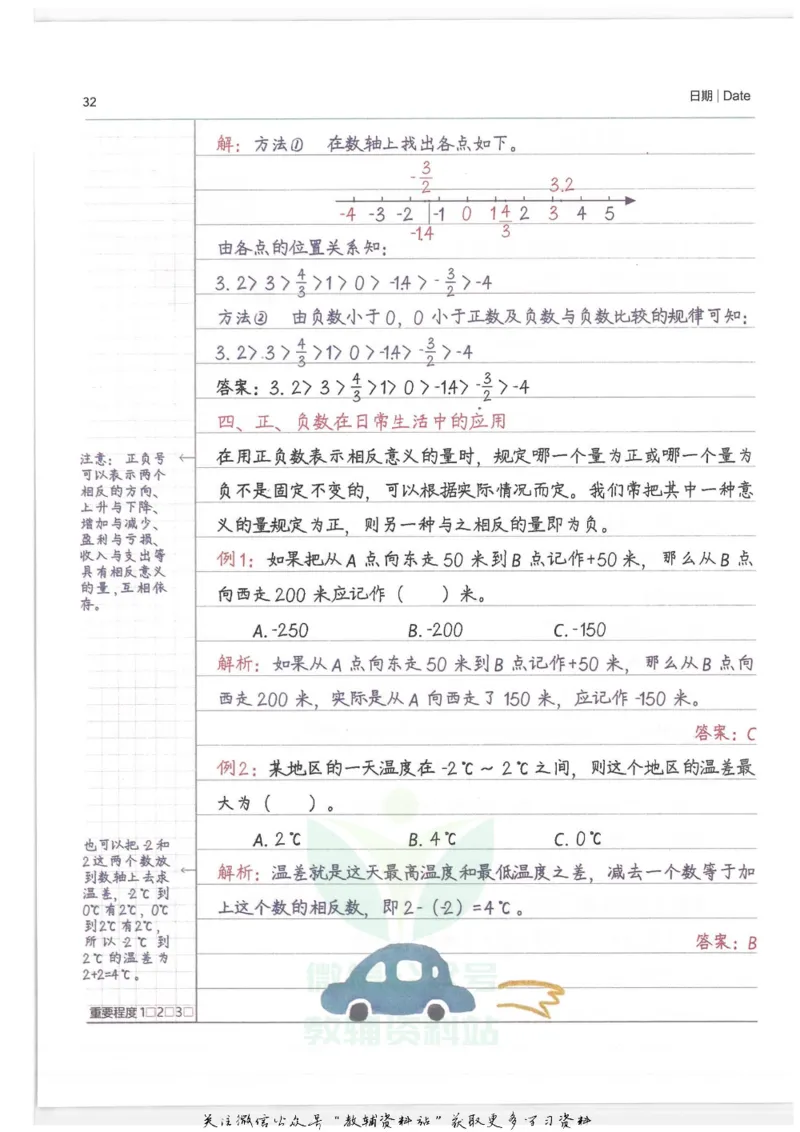 32
日期 | Date
解：方法① 在数轴上找出各点如下。
-3/2 3.2
-4 -3 -2 -1 0 1 4/3 2 3 4 5
-1.4
由各点的位置关系知：
3.2>3>4/3>1>0>-1.4>-3/2>-4
方法② 由负数小于0，0小于正数及负数与负数比较的规律可知：
3.2>3>4/3>1>0>-1.4>-3/2>-4
答案：3.2>3>4/3>1>0>-1.4>-3/2>-4
四、正、负数在日常生活中的应用
在用正负数表示相反意义的量时，规定哪一个量为正或哪一个量为
负不是固定不变的，可以根据实际情况而定。我们常把其中一种意
义的量规定为正，则另一种与之相反的量即为负。
注意：正负号
可以表示两个
相反的方向、
上升与下降、
增加与减少、
盈利与亏损、
收入与支出等
具有相反意义
的量，互相依
存。
例1：如果把从A点向东走50米到B点记作+50米，那么从B点
向西走200米应记作（ ）米。
A.-250 B.-200 C.-150
解析：如果从A点向东走50米到B点记作+50米，那么从B点向
西走200米，实际是从A向西走了150米，应记作-150米。
答案：C
例2：某地区的一天温度在-2℃～2℃之间，则这个地区的温差最
大为（ ）。
A.2℃ B.4℃ C.0℃
解析：温差就是这天最高温度和最低温度之差，减去一个数等于加
上这个数的相反数，即2-（-2）=4℃。
答案：B
也可以把-2和
2这两个数放
到数轴上去求
温差，-2℃到
0℃有2℃，0℃
到2℃有2℃，
所以-2℃到
2℃的温差为
2+2=4℃。
重要程度1□2□3□
微信公众号
教辅资料站
关注微信公众号"教辅资料站"获取更多学习资料